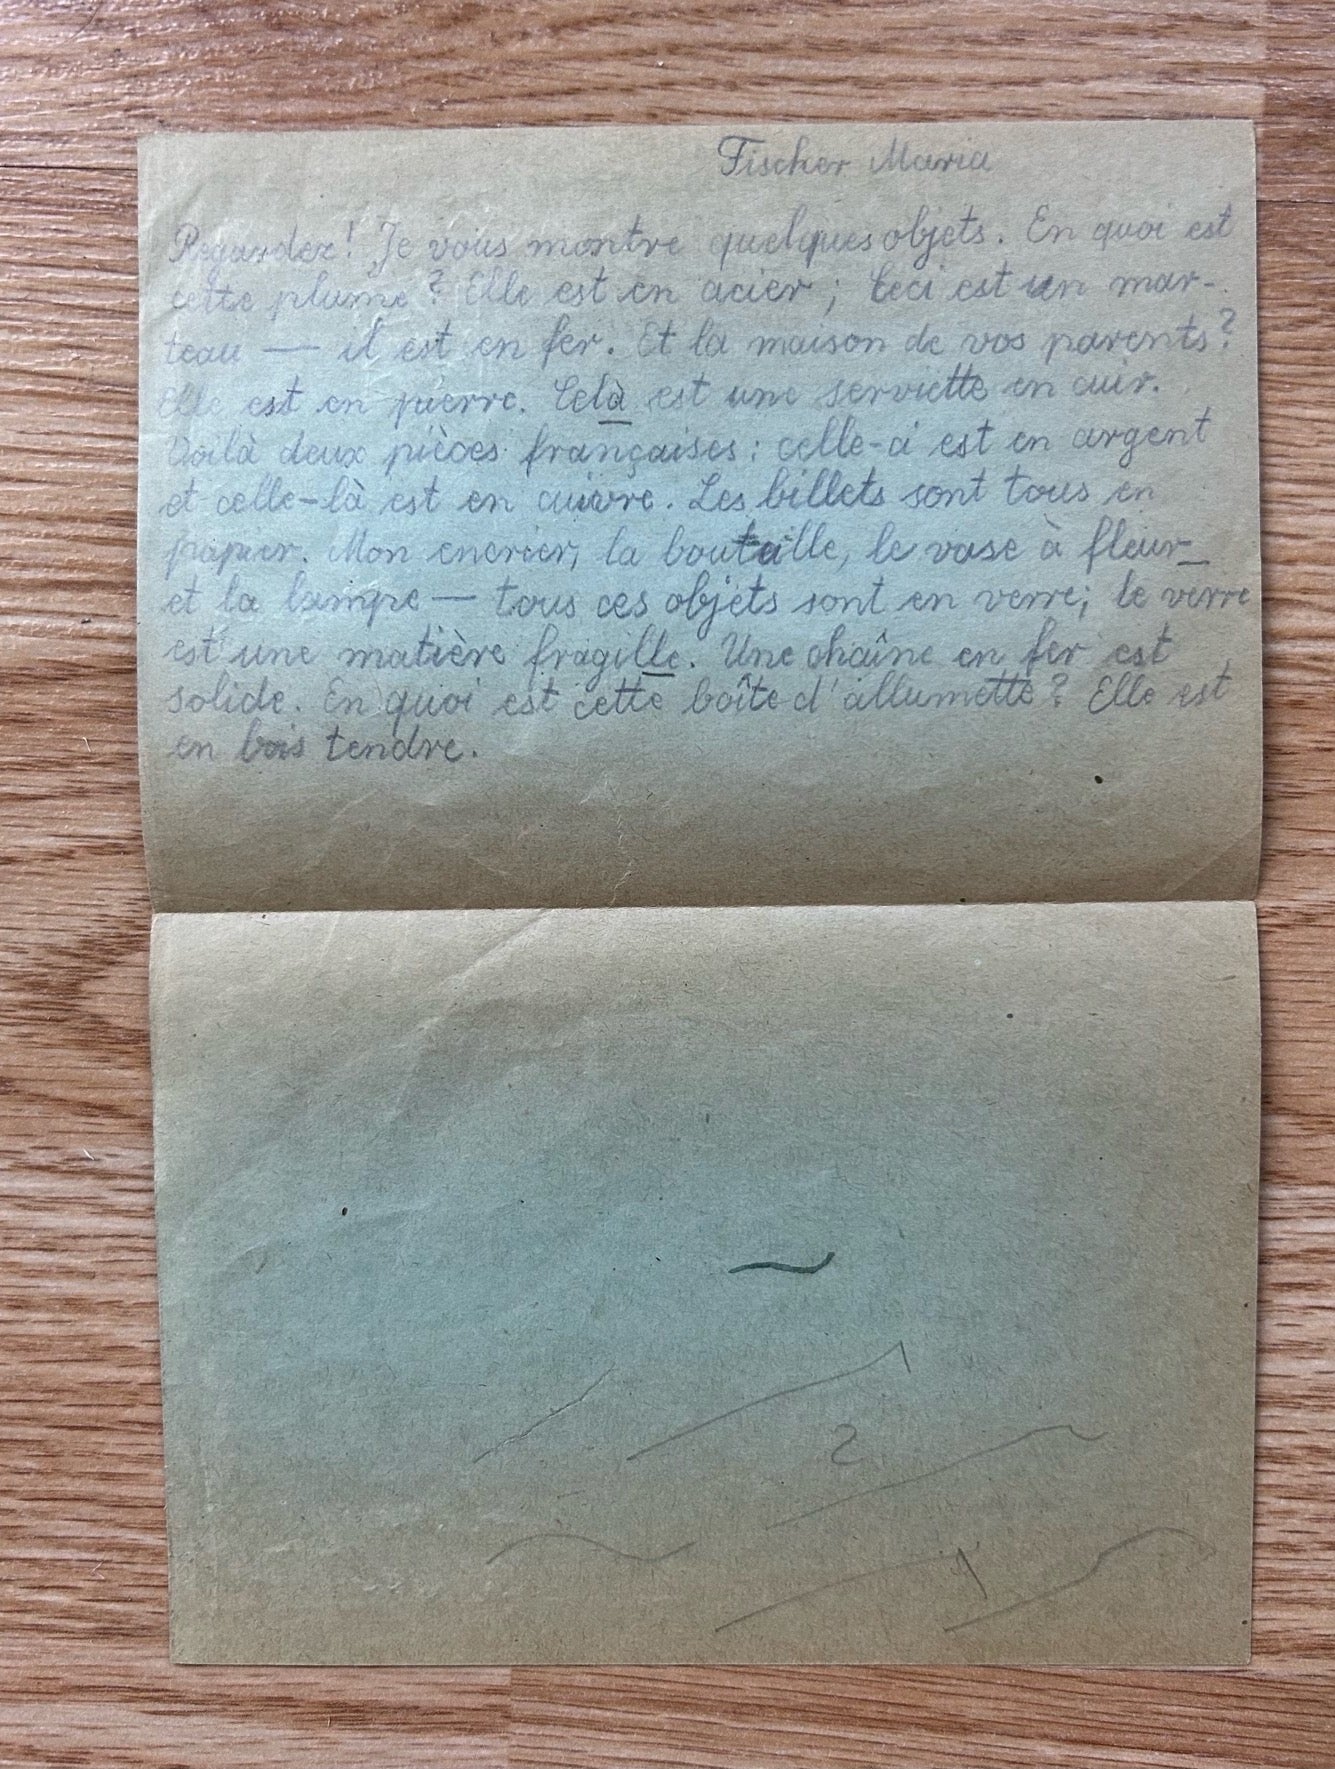 Fischer Maria
Regardez! Je vous montre quelques objets. En quoi est
cette plume? Elle est en acier; Ceci est un mar-
teau — il est en fer. Et la maison de vos parents?
Elle est en pierre. Celà est une serviette en cuir.
Voilà deux pièces françaises: celle-ci est en argent
et celle-là est en cuivre. Les billets sont tous en
papier. Mon encrier, la bouteille, le vase à fleur_
et la lampe — tous ces objets sont en verre; le verre
est une matière fragille. Une chaîne en fer est
solide. En quoi est cette boîte d'allumette? Elle est
en bois tendre.
2
1